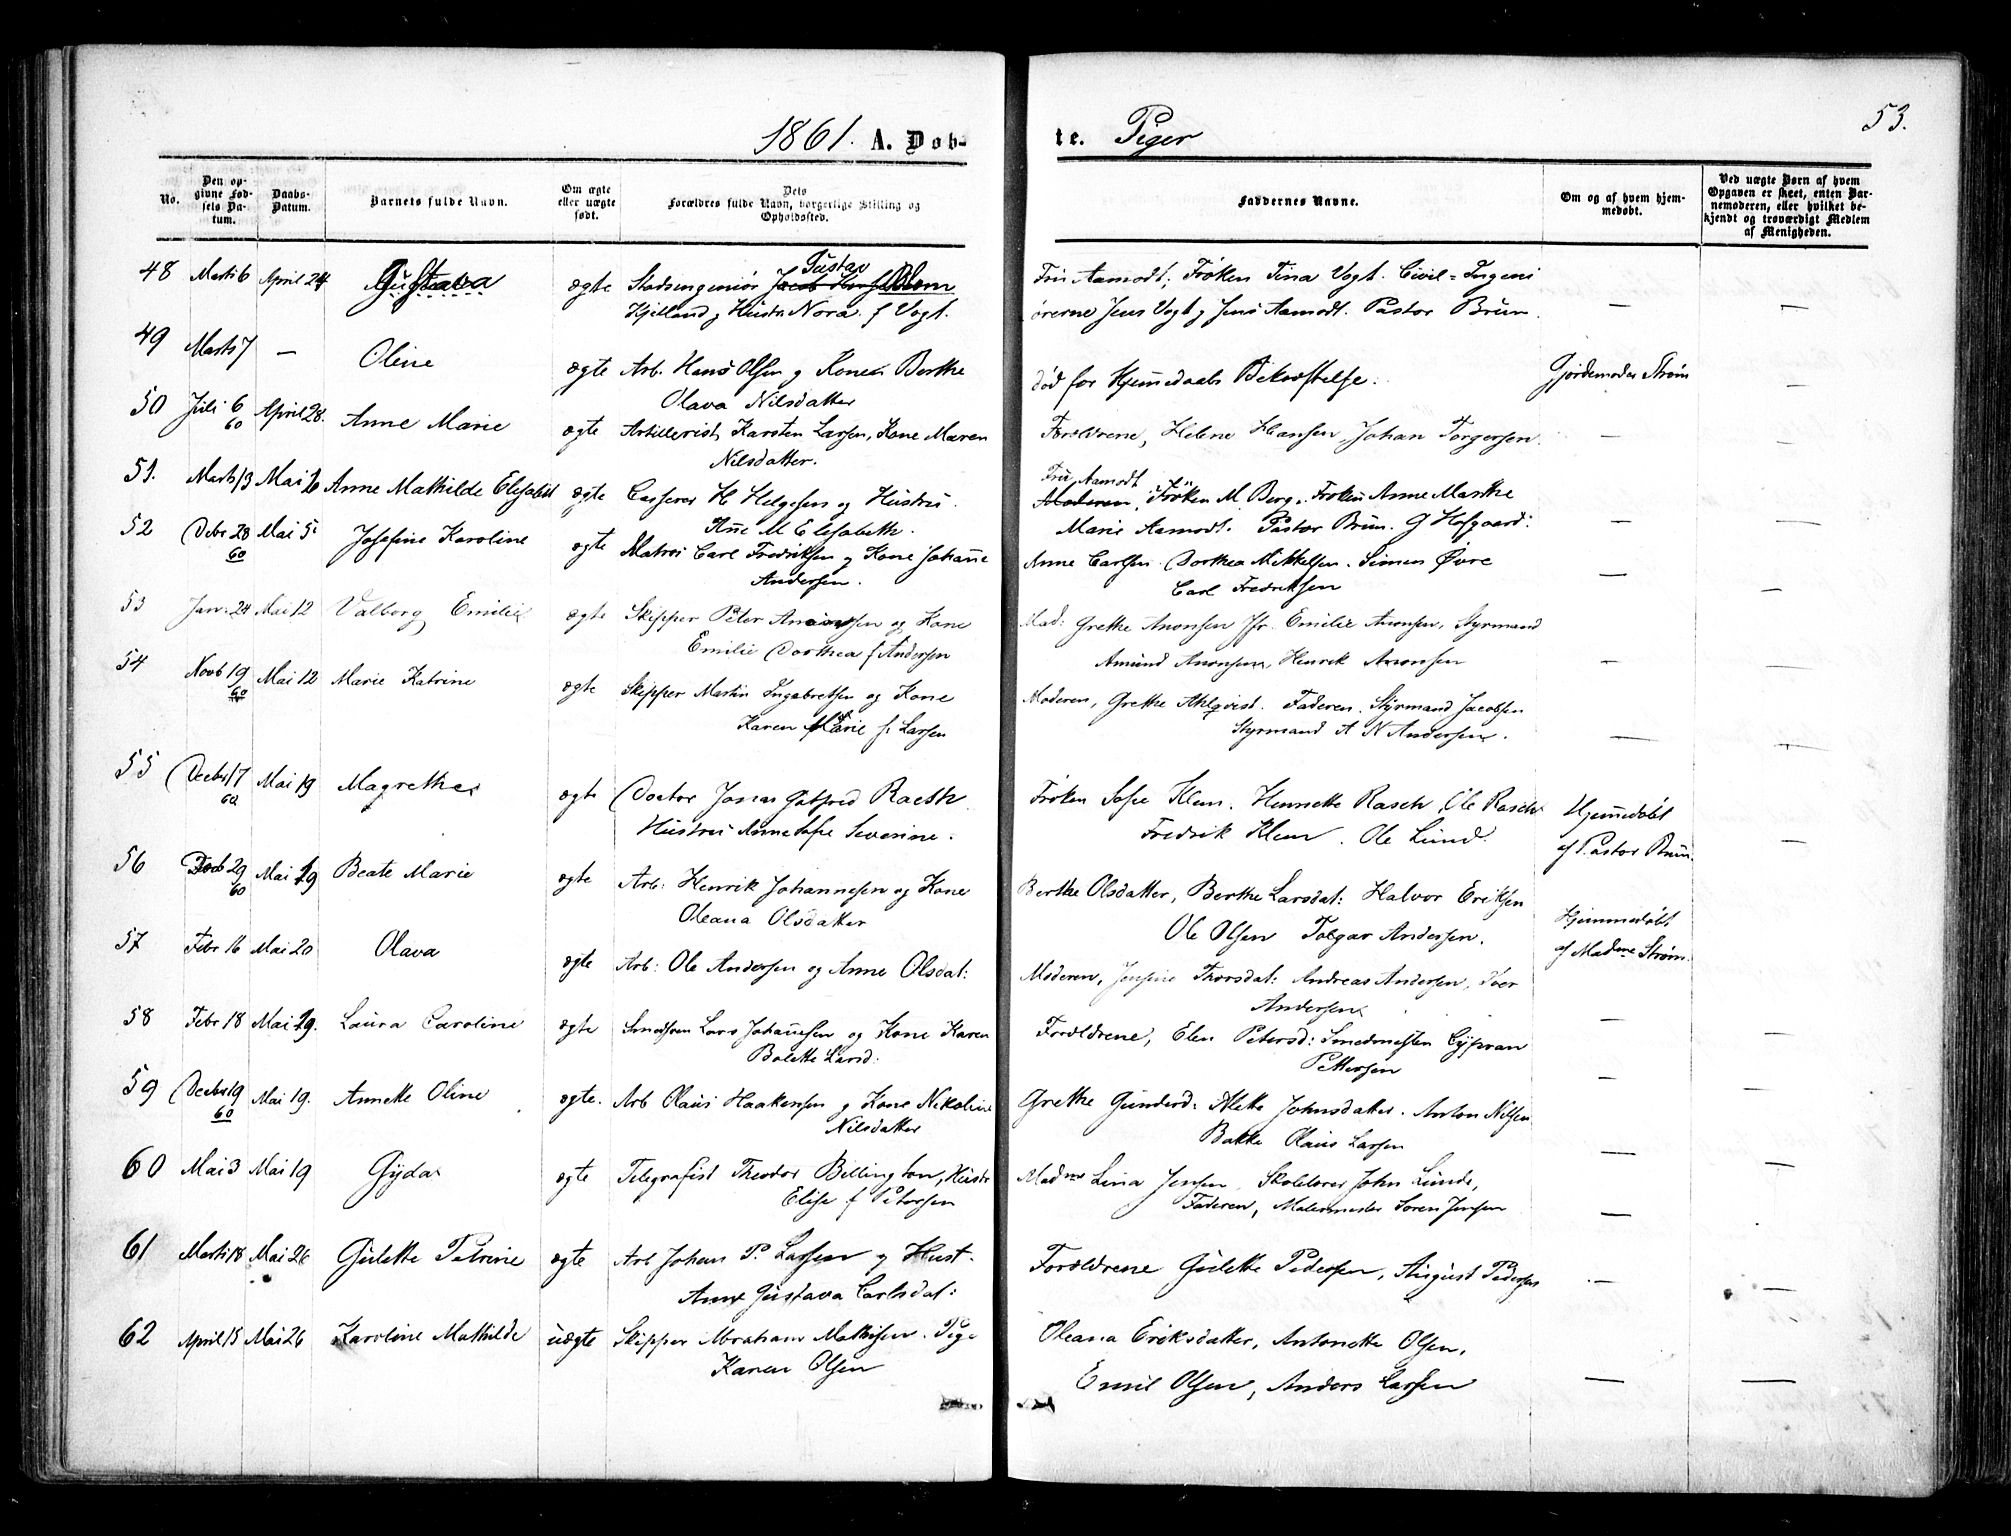 1861. A. Døb-
te. Piger
53.
No.
Den op-
givne Fød-
sels Da-
tum.
Daabs-
Datum.
Barnets fulde Navn.
Om ægte
eller uægte
født.
Dets
Forældres fulde Navn, borgerlige Stilling og
Opholdssted.
Faddernes Navne.
Om og af hvem hjem-
medøbt.
Ved uægte Børn af hvem
Opgaven er skeet, enten Bar-
nemoderen, eller hvilket be-
kjendt og troværdigt Medlem
af Menigheden.
48 Marts 6 April 24 Gustava ægte Stadsingeniør Jacob Gustav Blom
Kjelland og Hustr Nora f Vogt.
Fru Aamodt, Frøken Tina Vogt. Civil-Ingeni
ørerne Jens Vogt og Jens Aamodt. Pastor Brun.
—
—
49 Marts 7 — Oline ægte Arb. Hans Olsen og Kone Berthe
Olava Nilsdatter
død før Hjemmedaabs Bekræftelse.
Gjordemoder Strøm
—
50 Juli 6 60 April 28. Anne Marie ægte Artillerist Karsten Larsen, Kone Maren
Nilsdatter.
Forældrene, Helene Hansen, Johan Torgersen.
—
—
51. Marts 13 Mai 6 Anne Mathilde Elisabet ægte Casserer H Helgesen og Hustru
Anne M Elisabeth.
Fru Aamodt
Moderen, Frøken M. Berg. Frøken Anne Marthe
Marie Aamodt. Pastor Brun. G Hofgaard.
—
—
52 Debr 28 60 Mai 5 Josefine Karoline ægte Matros Carl Fredriksen og Kone Johanne
Andersen.
Anne Carlsen. Dorthea Mikkelsen. Simen Øvre
Carl Fredriksen
—
—
53 Jan. 24 Mai 12 Valborg Emilie ægte Skipper Peter Anonsen og Kone
Emilie Dorthea f Andersen
Mad: Grethe Anonsen Jfr. Emilie Anonsen, Styrmand
Amund Anonsen, Henrik Anonsen
—
—
54 Novb 19 60 Mai 12 Marie Katrine ægte Skipper Martin Ingebretsen og Kone
Karen Marie f. Larsen
Moderen, Grethe Ahlqvist. Faderen. Styrmand Jacobsen
Styrmand A N Andersen.
—
—
55 Decbr 17 60 Mai 19 Magrethe ægte Doctor Jonas Gotfred Rasch
Hustru Anne Sofie Severine.
Frøken Sofie Klem. Henriette Rasch, Ole Rasch
Fredrik Klem. Ole Lund.
Hjemmedøbt
af Pastor Brun.
—
56 Decb 29 60 Mai 19 Beate Marie ægte Arb: Henrik Johannesen og Kone
Oleana Olsdatter
Berthe Olsdatter, Berthe Larsdat: Halvor Eriksen
Ole Olsen Tolgar Andersen.
Hjemmedøbt
af Madme Strøm.
57 Febr 16 Mai 20 Olava ægte Arb: Ole Andersen og Anne Olsdat:
Moderen, Jensine Thorsdat: Andreas Andersen, Iver
Andersen
—
—
58 Febr 18 Mai 19. Laura Caroline ægte Smedsven Lars Johannesen og Kone Karen
Bolette Larsd:
Forældrene, Elen Petersd: Smedmesten Cyprian
Pettersen
—
—
59 Decbr 19 60 Mai 19. Annette Oline ægte. Arb Olaus Haakensen og Kone Nikoline
Nilsdatter
Grethe Gundersd: Mette Johnsdatter. Anton Nilsen
Bakke Olaus Larsen
—
—
60 Mai 3 Mai 19 Gyda ægte Telegrafist Theodor Billington, Hustr
Elise f Petersen
Madme Lina Jensen, Skolelærer John Lunde,
Faderen, Malermester Søren Jensen
—
—
61 Marts 18 Mai 26 Gulette Petrine ægte Arb Johan P. Larsen og Hust.
Anne Gustava Carlsdat:
Forældrene Gulette Pedersen, August Pedersen
—
—
62 April 15 Mai 26 Karoline Mathilde uægte Skipper Abraham Mathisen. Pige
Karen Olsen
Oleana Eriksdatter, Antonette Olsen,
Emil Olsen, Anders Larsen
—
—